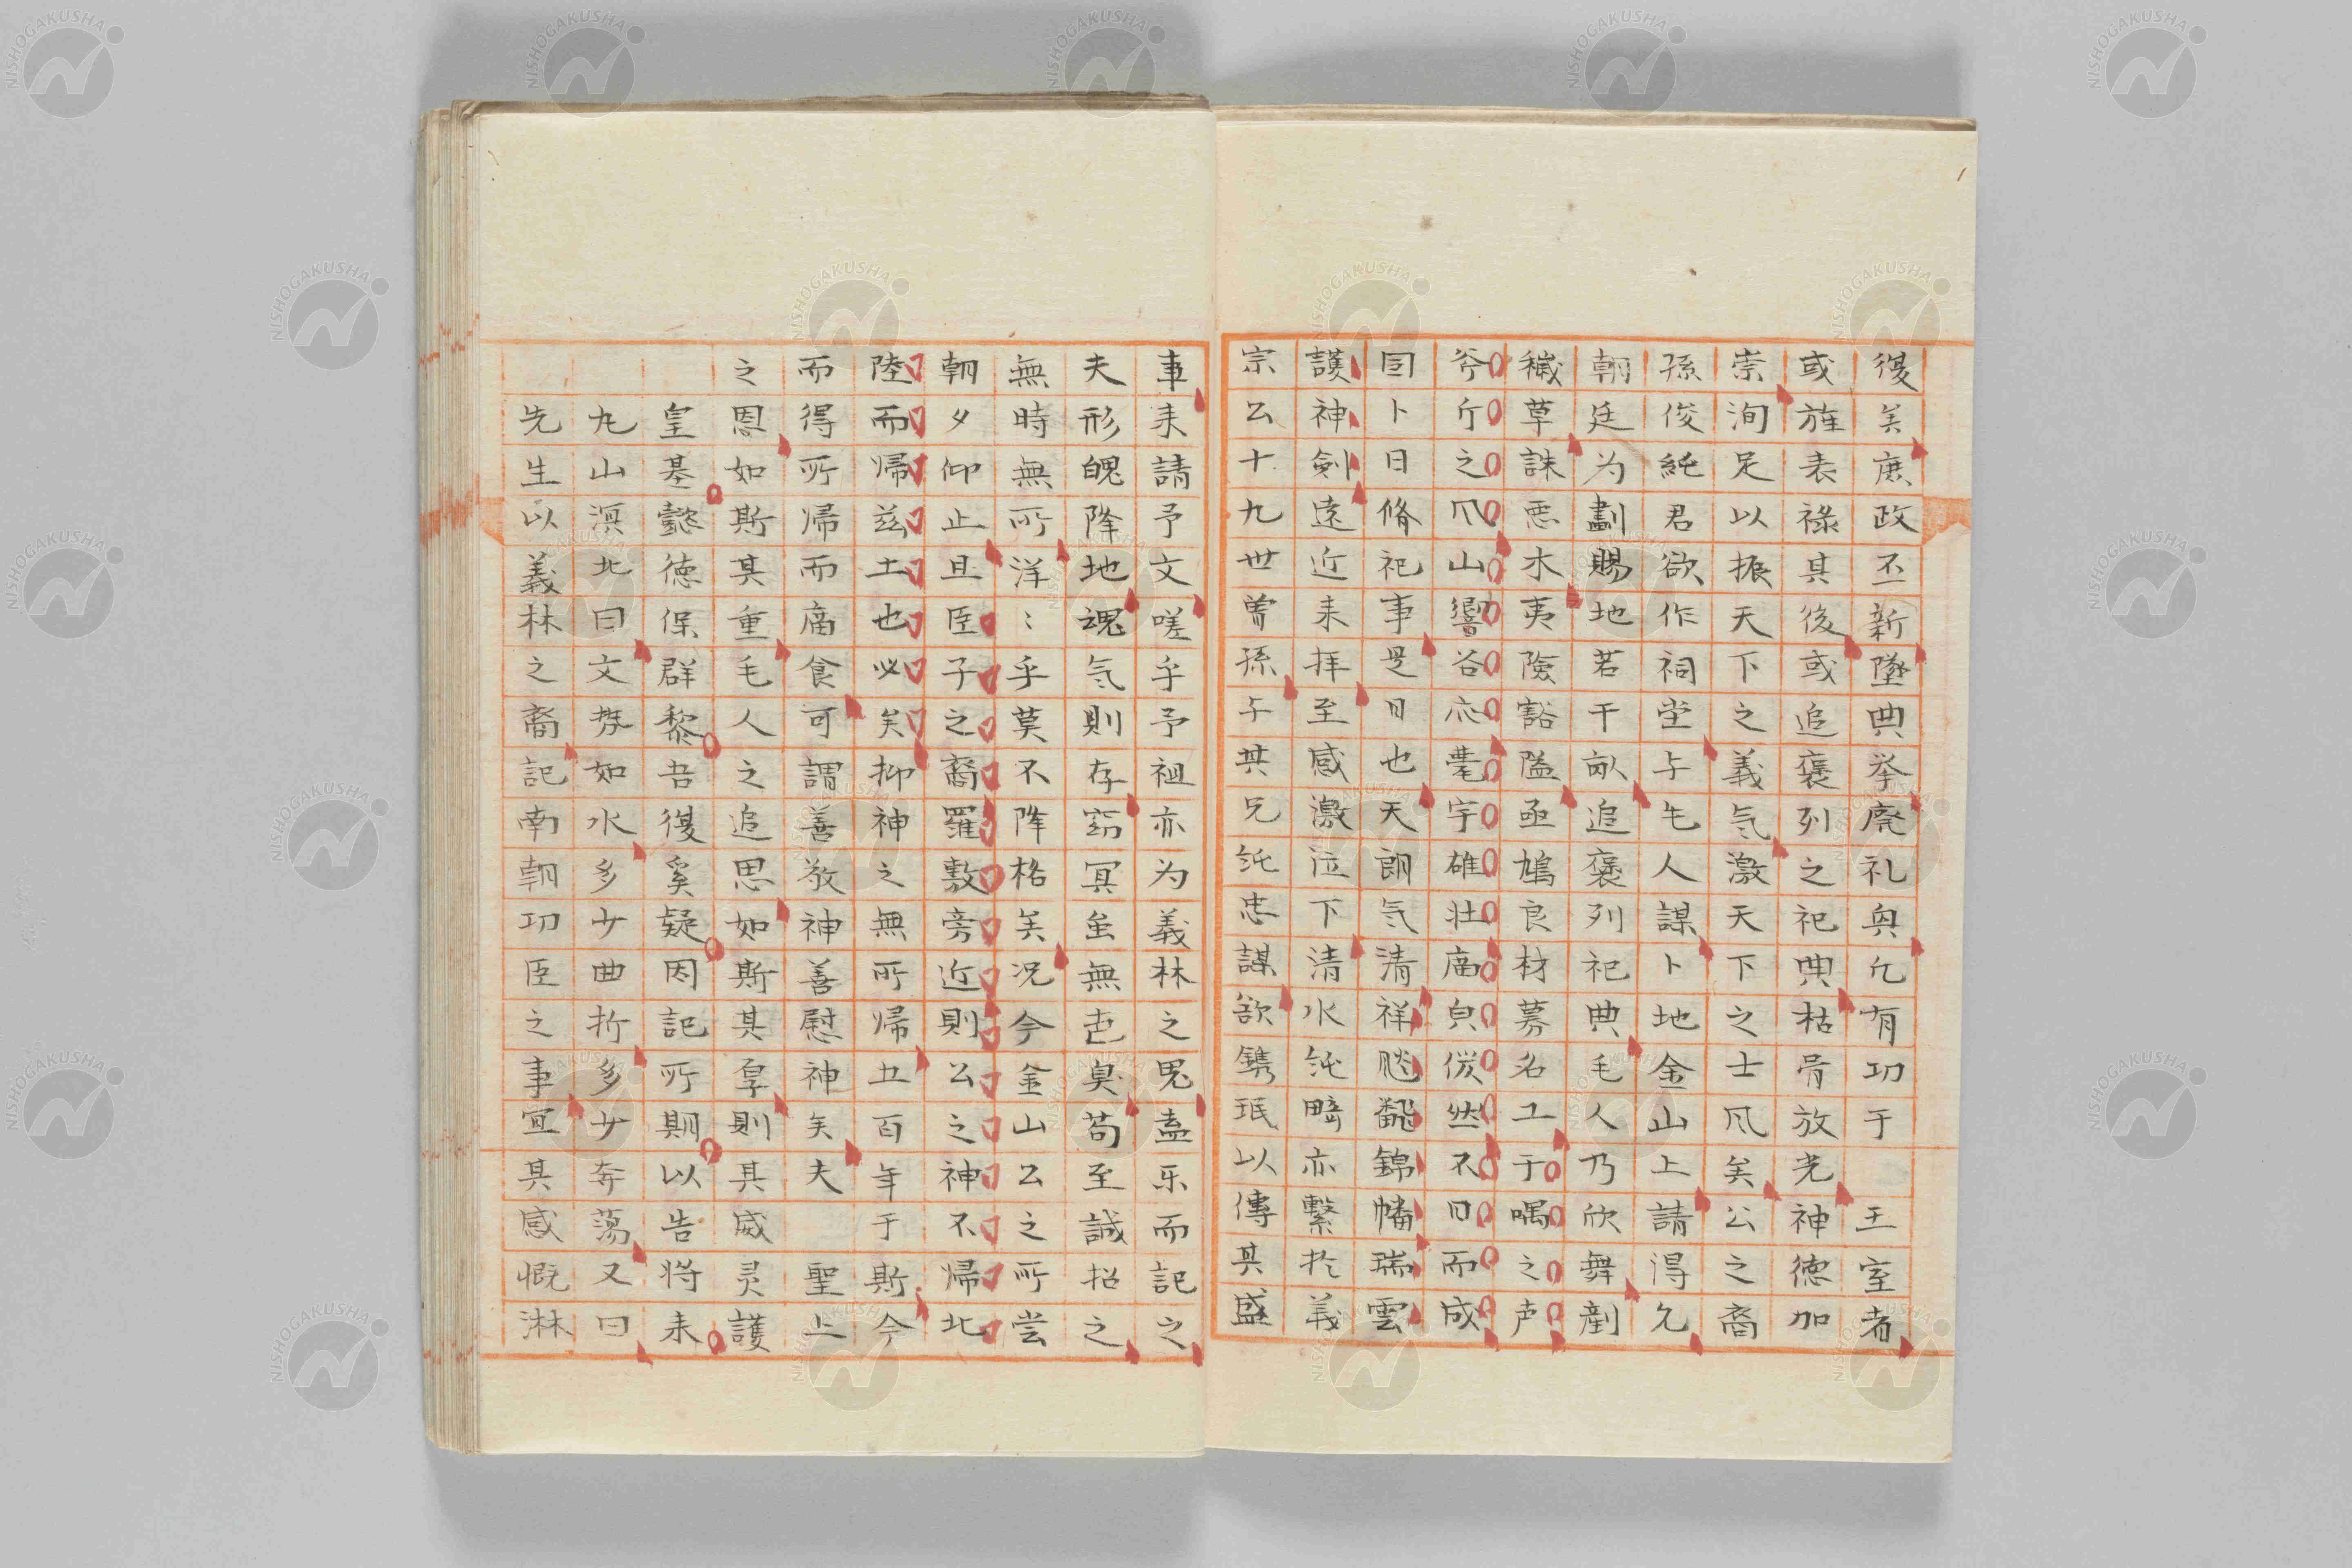 復矣庶政丕新墜典挙廃礼興凡有功于王室者
或旌表禄其後或追褒列之祀典枯骨放光神徳加
崇洵足以振天下之義气激天下之士风矣公之裔
孫俊純君欲作祠堂与乇人謀卜地金山上請得允
朝廷为劃賜地若干畝追褒列祀典毛人乃欣舞剷
穢草誅悪木夷険谿隘亟鳩良材募名工于喁之声
斧斤之风山響谷応甍宇雄壮廟皃偀然不日而成
囙卜日脩祀事是日也天朗气清祥飈飜錦幡瑞雲
護神剣遠近来拝至感激泣下清水純畸亦繫於義
宗公十九世曽孫与其兄純忠謀欲鐫珉以傳其盛
事来請予文嗟乎予祖亦为義林之鬼盍乐而記之
夫形魄降地魂气則存窈冥虽無色臭苟至誠招之
無時無所洋〻乎莫不降格矣况今金山公之所尝
朝夕仰止且臣子之裔羅敷旁近則公之神不帰北
陸而帰茲土也必矣抑神之無所帰五百年于斯今
而得所帰而廟食可謂善敬神善慰神矣夫聖上
之恩如斯其重毛人之追思如斯其厚則其威灵護
皇基懿徳保群黎吾復奚疑因記所期以告将来
九山溟北曰文勢如水多少曲折多少奔蕩又曰
先生以義林之裔記南朝功臣之事宜其感慨淋
NISHOGAKUSHA